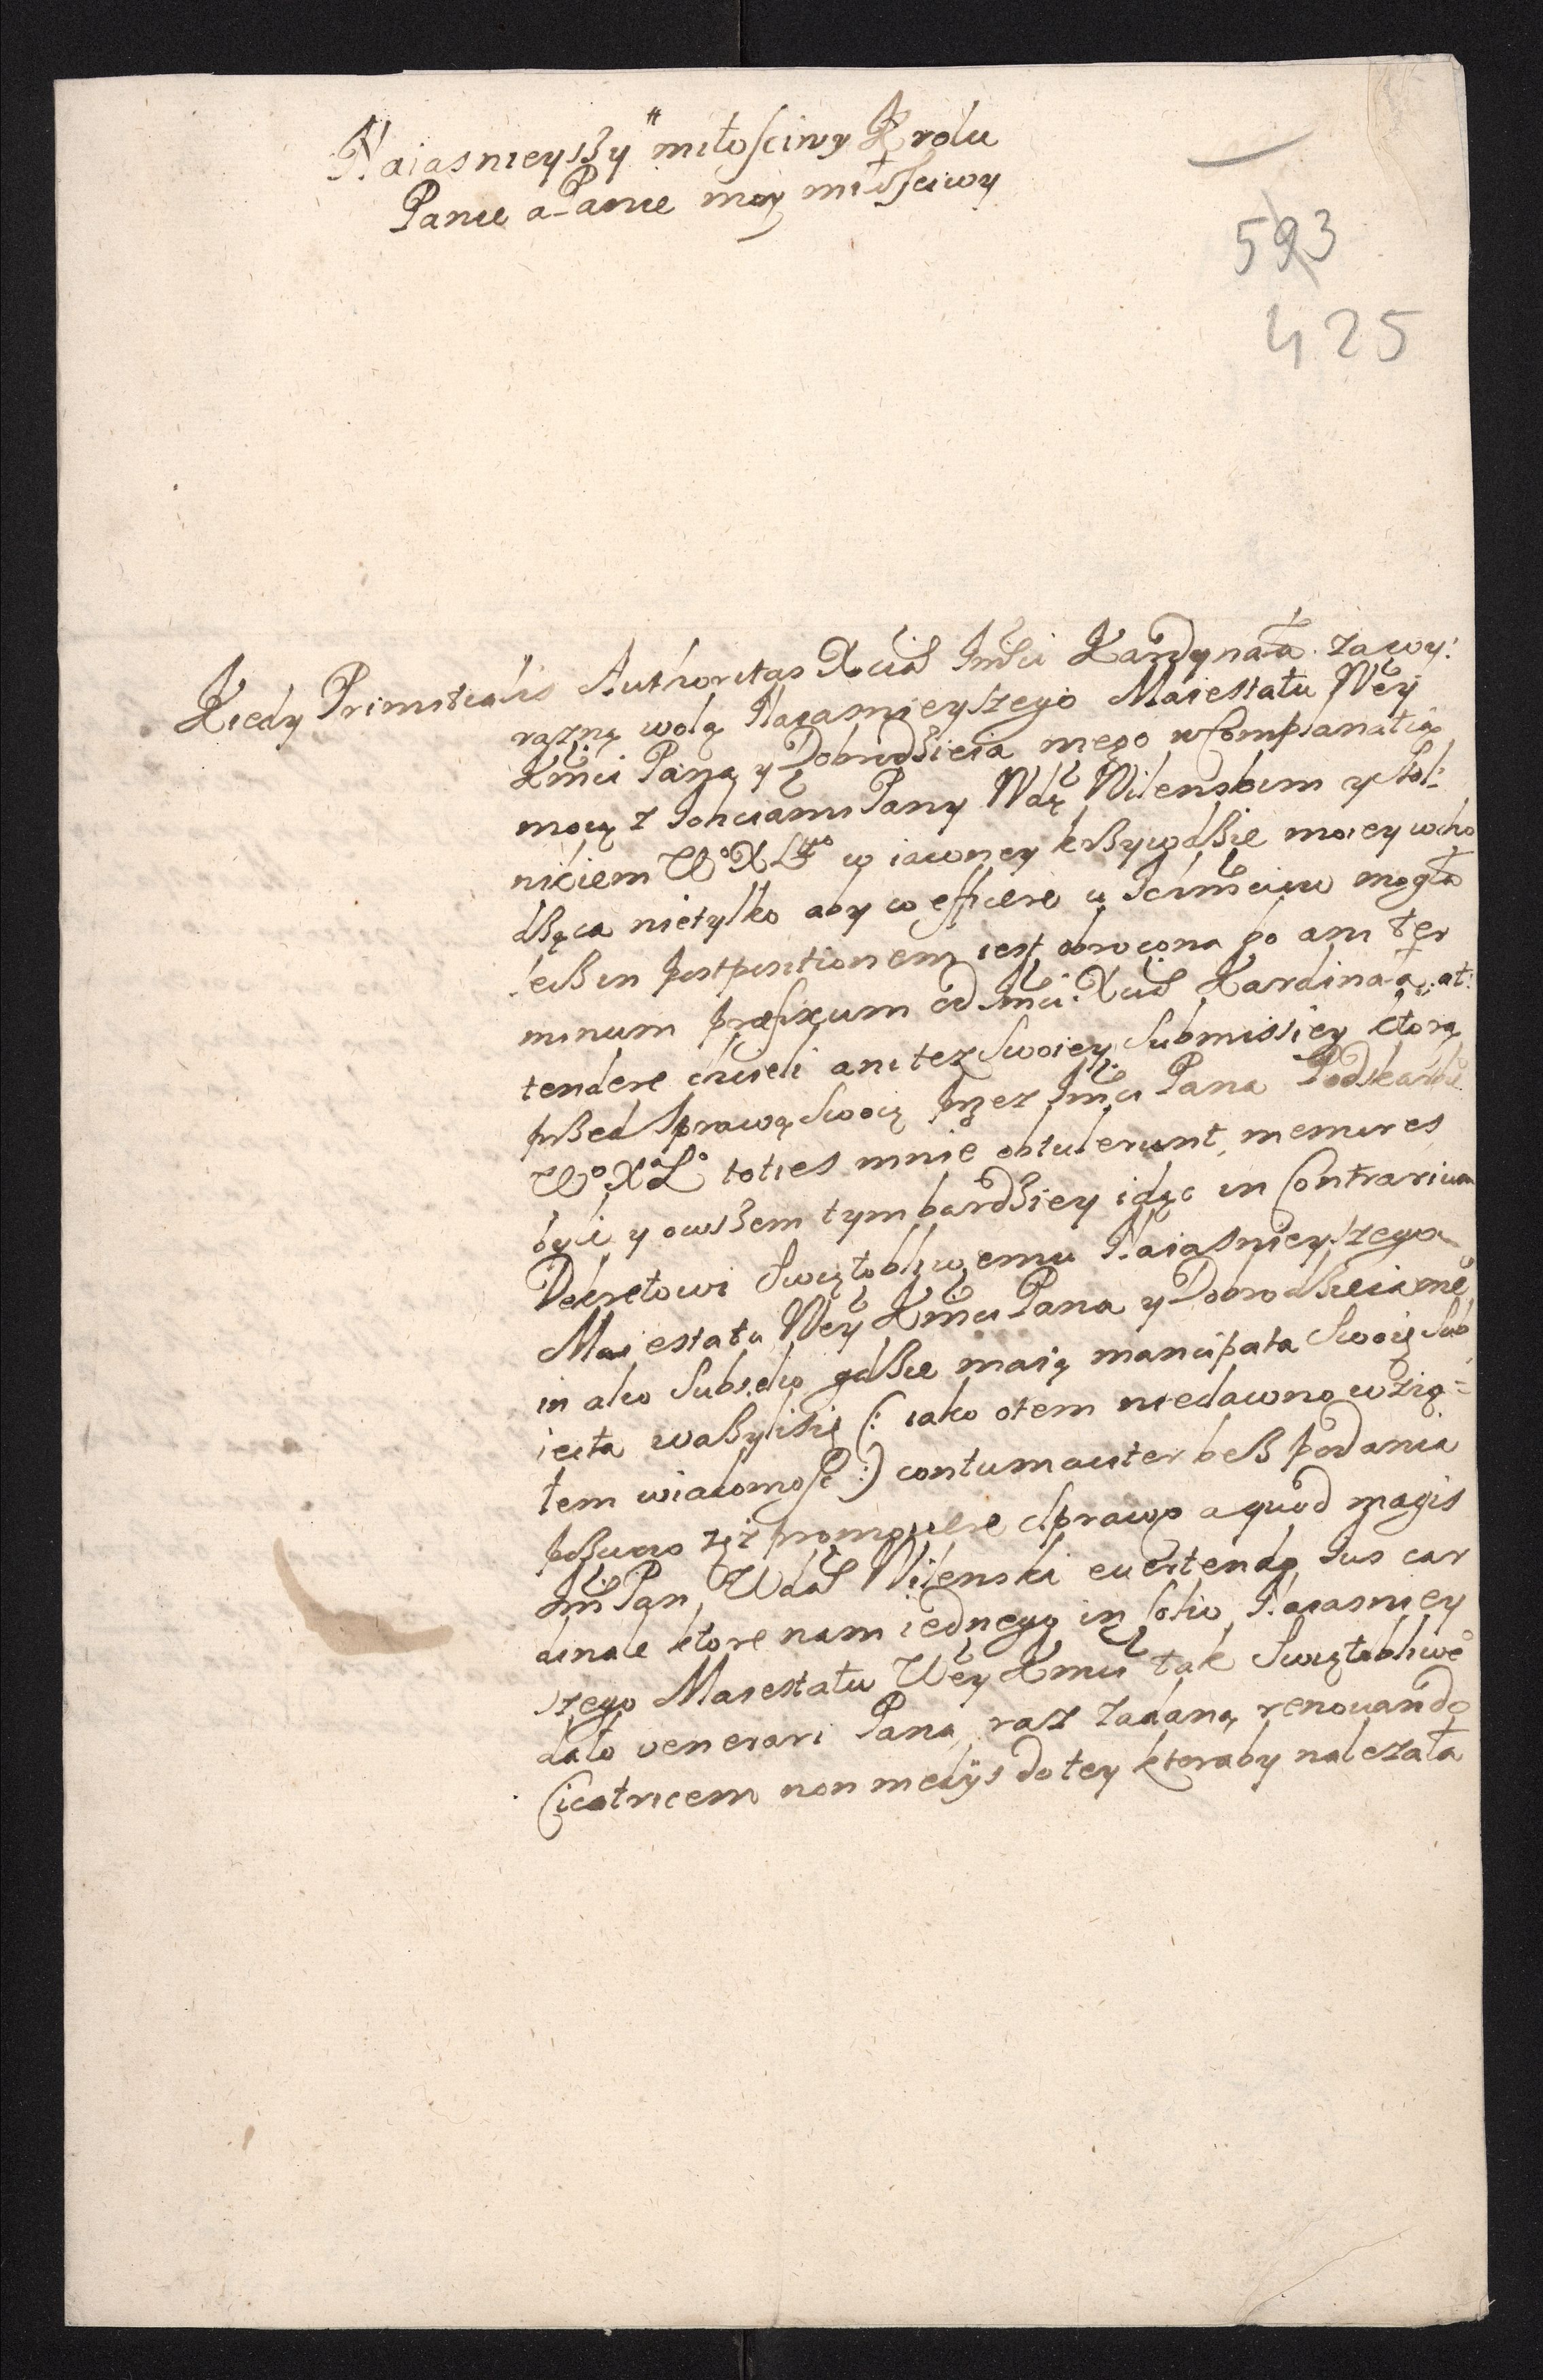 Naiasnieyszy miłosciwy Krolu
Panie a Panie moy miłosciwy
593
425
Kiedy Primitialis Authoritas Xcia Jmści Kardynała za wy:
razną wolą Naiasnieyszego Maiestatu Wey
Kmci Pana y Dobrodzieia mego w Complanatią
mocą z Ichciami Pany Wdą Wilenskim y Stol:
nikiem Wo X Lgo w iawney krzywdzie moiey wcho
dząca nietylko aby co efficere u Ichmciow mogła
lecz in postpositionem iest obrocona bo ani ter
minum præfixum od Jmci Xcia Kardinała at:
tendere chcieli ani tez swoiey submissiey ktorą
przed sprawą swoią przez Jmci Pana Podskarbie
Wo X Lo toties mnie obtulerunt, memores
byli y owszem tym bardziey idąc in Contrarium
Dekretowi swiątobliwemu Naiasnieyszego
Maiestatu Wey Kmci Pana y Dobrodzieia me
in alio subselio gdzie maią mancipata swoię sub
iecta wazylisię (: iako otem niedawno wzią=
łem wiadomość :) contumaciter bez podania
pozwow też promovere sprawę a quod magis
Jm Pan Wda Wilenski evertendo ius car
dinale ktore nam iednego in solio Naiasniey
szego Maiestatu Wey Kmci tak swiątobliwe
dało venerari Pana, raz zadaną renouando
Cicatricem non medijs do tey ktoraby nalezała